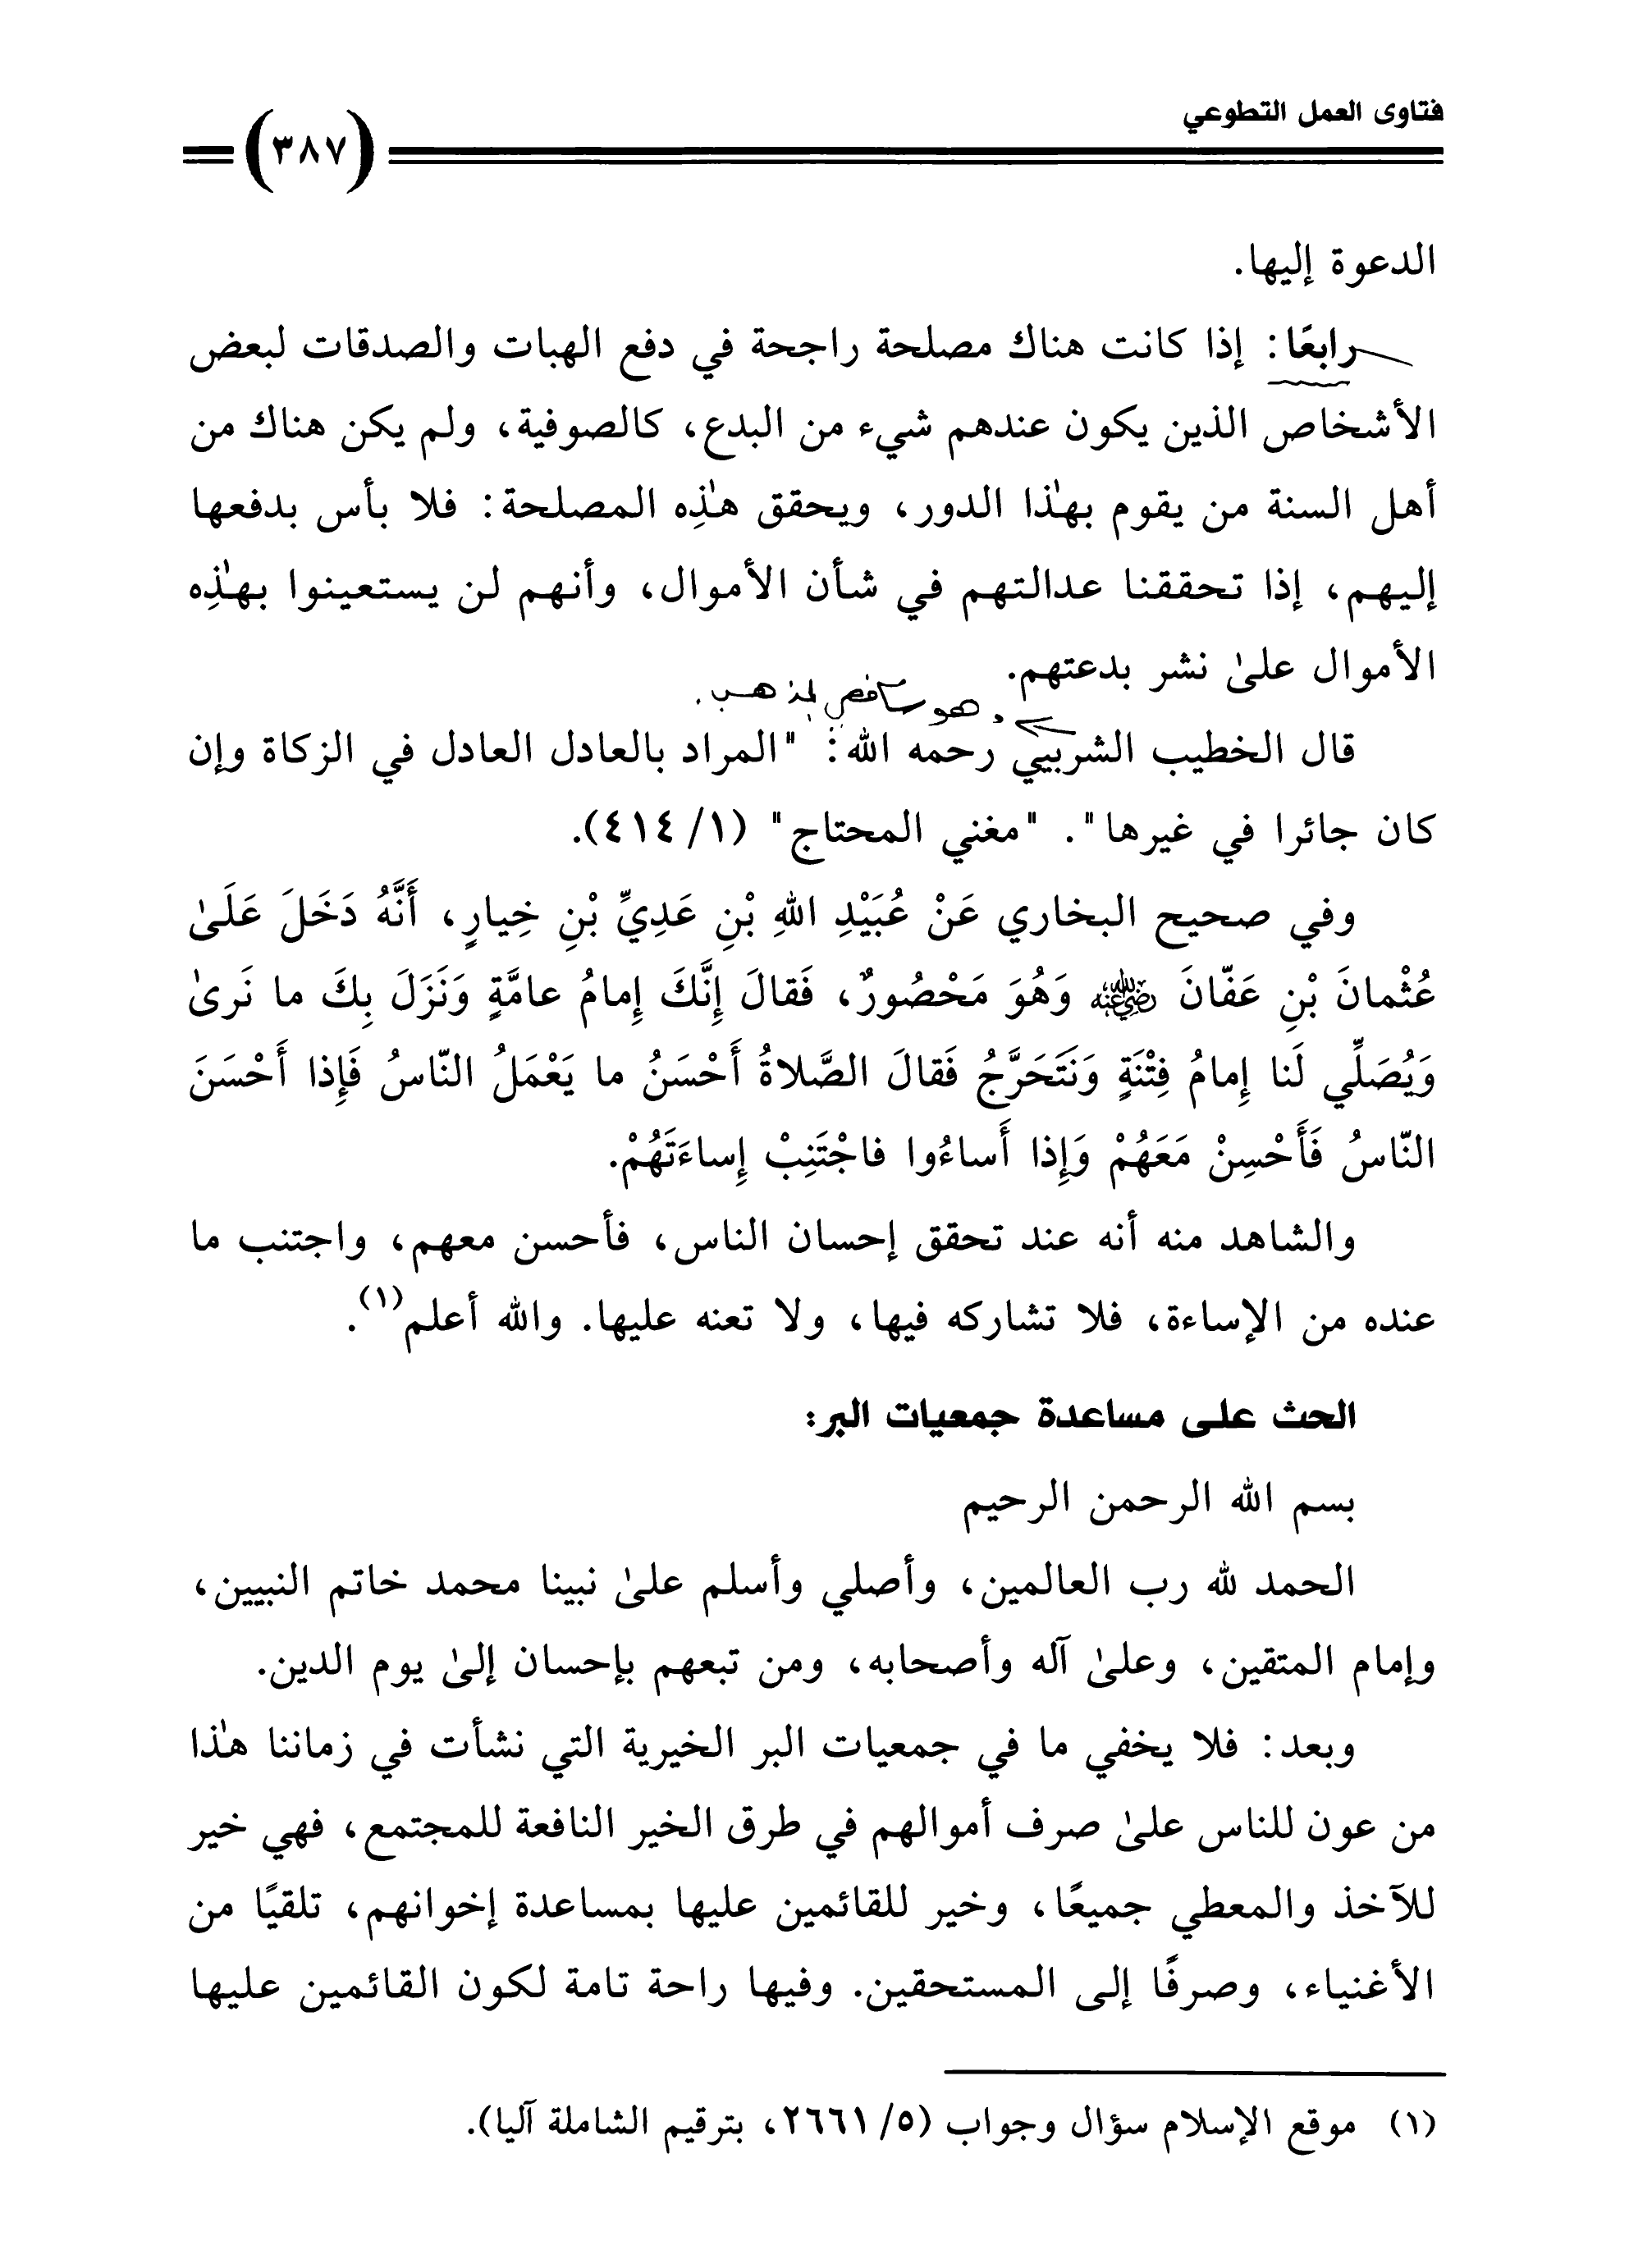 فتاوى العمل التطوعي
(٣٨٧)
الدعوة إليها.
رابعًا: إذا كانت هناك مصلحة راجحة في دفع الهبات والصدقات لبعض
الأشخاص الذين يكون عندهم شيء من البدع، كالصوفية، ولم يكن هناك من
أهل السنة من يقوم بهٰذا الدور، ويحقق هٰذِه المصلحة: فلا بأس بدفعها
إليهم، إذا تحققنا عدالتهم في شأن الأموال، وأنهم لن يستعينوا بهٰذِه
الأموال علىٰ نشر بدعتهم.
وهو شافعي المذهب.
قال الخطيب الشربيني رحمه الله: "المراد بالعادل العادل في الزكاة وإن
كان جائرا في غيرها". "مغني المحتاج" (١/ ٤١٤).
وفي صحيح البخاري عَنْ عُبَيْدِ اللهِ بْنِ عَدِيِّ بْنِ خِيارٍ، أَنَّهُ دَخَلَ عَلَىٰ
عُثْمانَ بْنِ عَفّانَ رضي الله عنه وَهُوَ مَحْصُورٌ، فَقالَ إِنَّكَ إِمامُ عامَّةٍ وَنَزَلَ بِكَ ما نَرىٰ
وَيُصَلِّي لَنا إِمامُ فِتْنَةٍ وَنَتَحَرَّجُ فَقالَ الصَّلاةُ أَحْسَنُ ما يَعْمَلُ النّاسُ فَإِذا أَحْسَنَ
النّاسُ فَأَحْسِنْ مَعَهُمْ وَإِذا أَساءُوا فاجْتَنِبْ إِساءَتَهُمْ.
والشاهد منه أنه عند تحقق إحسان الناس، فأحسن معهم، واجتنب ما
عنده من الإساءة، فلا تشاركه فيها، ولا تعنه عليها. والله أعلم(١).
الحث على مساعدة جمعيات البر:
بسم الله الرحمن الرحيم
الحمد لله رب العالمين، وأصلي وأسلم علىٰ نبينا محمد خاتم النبيين،
وإمام المتقين، وعلىٰ آله وأصحابه، ومن تبعهم بإحسان إلىٰ يوم الدين.
وبعد: فلا يخفي ما في جمعيات البر الخيرية التي نشأت في زماننا هٰذا
من عون للناس علىٰ صرف أموالهم في طرق الخير النافعة للمجتمع، فهي خير
للآخذ والمعطي جميعًا، وخير للقائمين عليها بمساعدة إخوانهم، تلقيًا من
الأغنياء، وصرفًا إلى المستحقين. وفيها راحة تامة لكون القائمين عليها
(١) موقع الإسلام سؤال وجواب (٥/ ٢٦٦١، بترقيم الشاملة آليا).